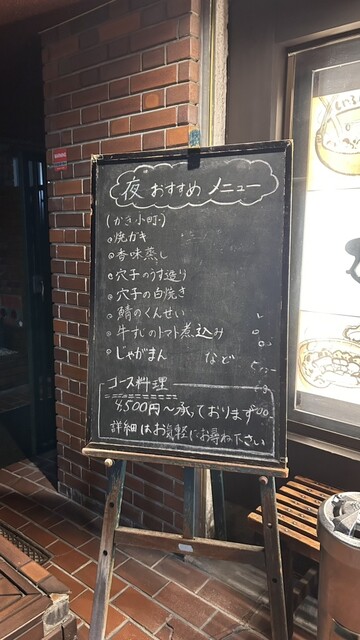 夜 おすすめ メニュー
(かき小町)
焼ガキ
香味蒸し
穴子のうす造り
穴子の白焼き
鯖のくんせい
牛すじのトマト煮込み
じゃがまん など
コース料理
4,500円〜承っております
詳細はお気軽にお尋ね下さい